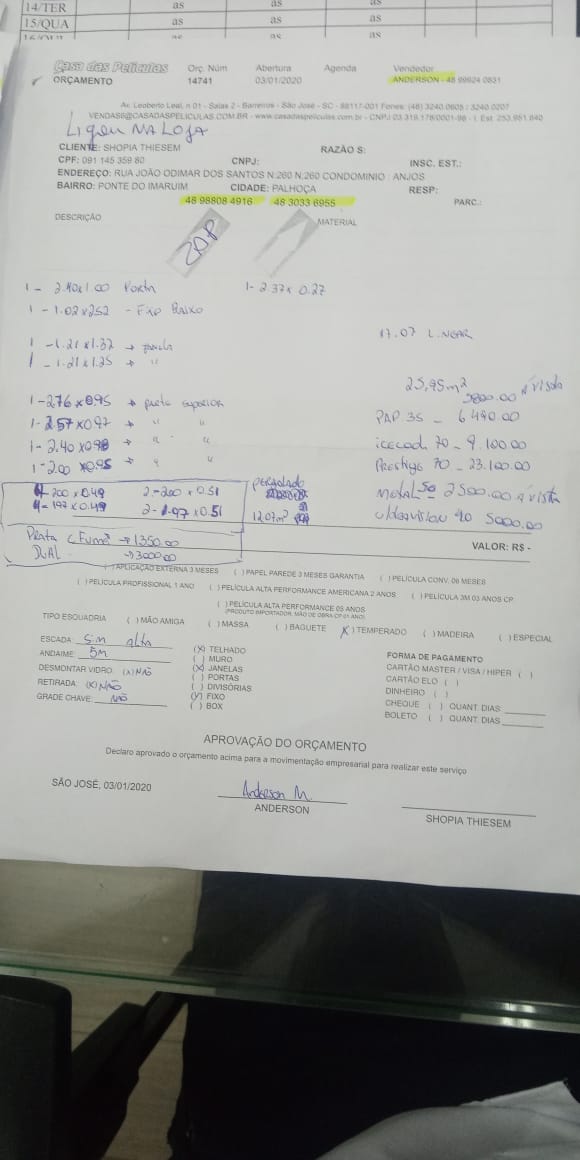 14/TER as as as
15/QUA as as as
Casa das Películas Orç. Núm Abertura Agenda Vendedor
ORÇAMENTO 14741 03/01/2020 ANDERSON - 48 99624 0831
Av. Leoberto Leal, n 01 - Salas 2 - Barreiros - São José - SC - 88117-001 Fones: (48) 3240.0605 / 3240.0207
VENDAS6@CASADASPELICULAS.COM.BR - www.casadaspeliculas.com.br - CNPJ 03.319.178/0001-98 - I. Est. 253.951.640
Ligou NA LOJA
CLIENTE: SHOPIA THIESEM RAZÃO S:
CPF: 091 145 359 80 CNPJ: INSC. EST.:
ENDEREÇO: RUA JOÃO ODIMAR DOS SANTOS N.260 N.260 CONDOMINIO : ANJOS
BAIRRO: PONTE DO IMARUIM CIDADE: PALHOÇA RESP:
48 98808 4916 48 3033 6955 PARC.:
DESCRIÇÃO MATERIAL
1 - 2.40x1.00 Porta 1- 2.37x 0.27
1 - 1.02x252 - Fixo Baixo
17.07 Linear
1 -1.21x1.37 → janela
1 -1.21x1.25 → "
25,95m²
3800.00 á vista
1-276x0.95 → preta superior
PAP. 35 - 6490.00
1-2.57x0.97 → " "
1-2.40x0.98 → " "
icecool 70 - 9.100.00
1-2.00x0.95 → " "
Prestige 70 - 23.100.00
4-200x0.49 2-200x0.51 pergolado
metal 50 2500.00 á vista
4-197x0.49 2-1.97x0.51 12.07m²
ultravision 90 5000.00
Prata e Fumê → 1350.00
VALOR: R$ -
DUAL → 3000.00
( ) APLICAÇÃO EXTERNA 3 MESES ( ) PAPEL PAREDE 3 MESES GARANTIA ( ) PELÍCULA CONV. 06 MESES
( ) PELÍCULA PROFISSIONAL 1 ANO ( ) PELÍCULA ALTA PERFORMANCE AMERICANA 2 ANOS ( ) PELÍCULA 3M 03 ANOS CP
( ) PELÍCULA ALTA PERFORMANCE 05 ANOS
(PRODUTO IMPORTADOR, MÃO DE OBRA/CP 01 ANO)
TIPO ESQUADRIA ( ) MÃO AMIGA ( ) MASSA ( ) BAGUETE (X) TEMPERADO ( ) MADEIRA ( ) ESPECIAL
ESCADA: Sim alta
ANDAIME: 5m
DESMONTAR VIDRO: (X) NÃO
RETIRADA: (X) NÃO
GRADE CHAVE: NÃO
(X) TELHADO
( ) MURO
(X) JANELAS
( ) PORTAS
( ) DIVISÓRIAS
(X) FIXO
( ) BOX
FORMA DE PAGAMENTO
CARTÃO MASTER / VISA / HIPER ( )
CARTÃO ELO ( )
DINHEIRO ( )
CHEQUE ( ) QUANT. DIAS
BOLETO ( ) QUANT. DIAS
APROVAÇÃO DO ORÇAMENTO
Declaro aprovado o orçamento acima para a movimentação empresarial para realizar este serviço
SÃO JOSÉ, 03/01/2020 Anderson M.
ANDERSON SHOPIA THIESEM